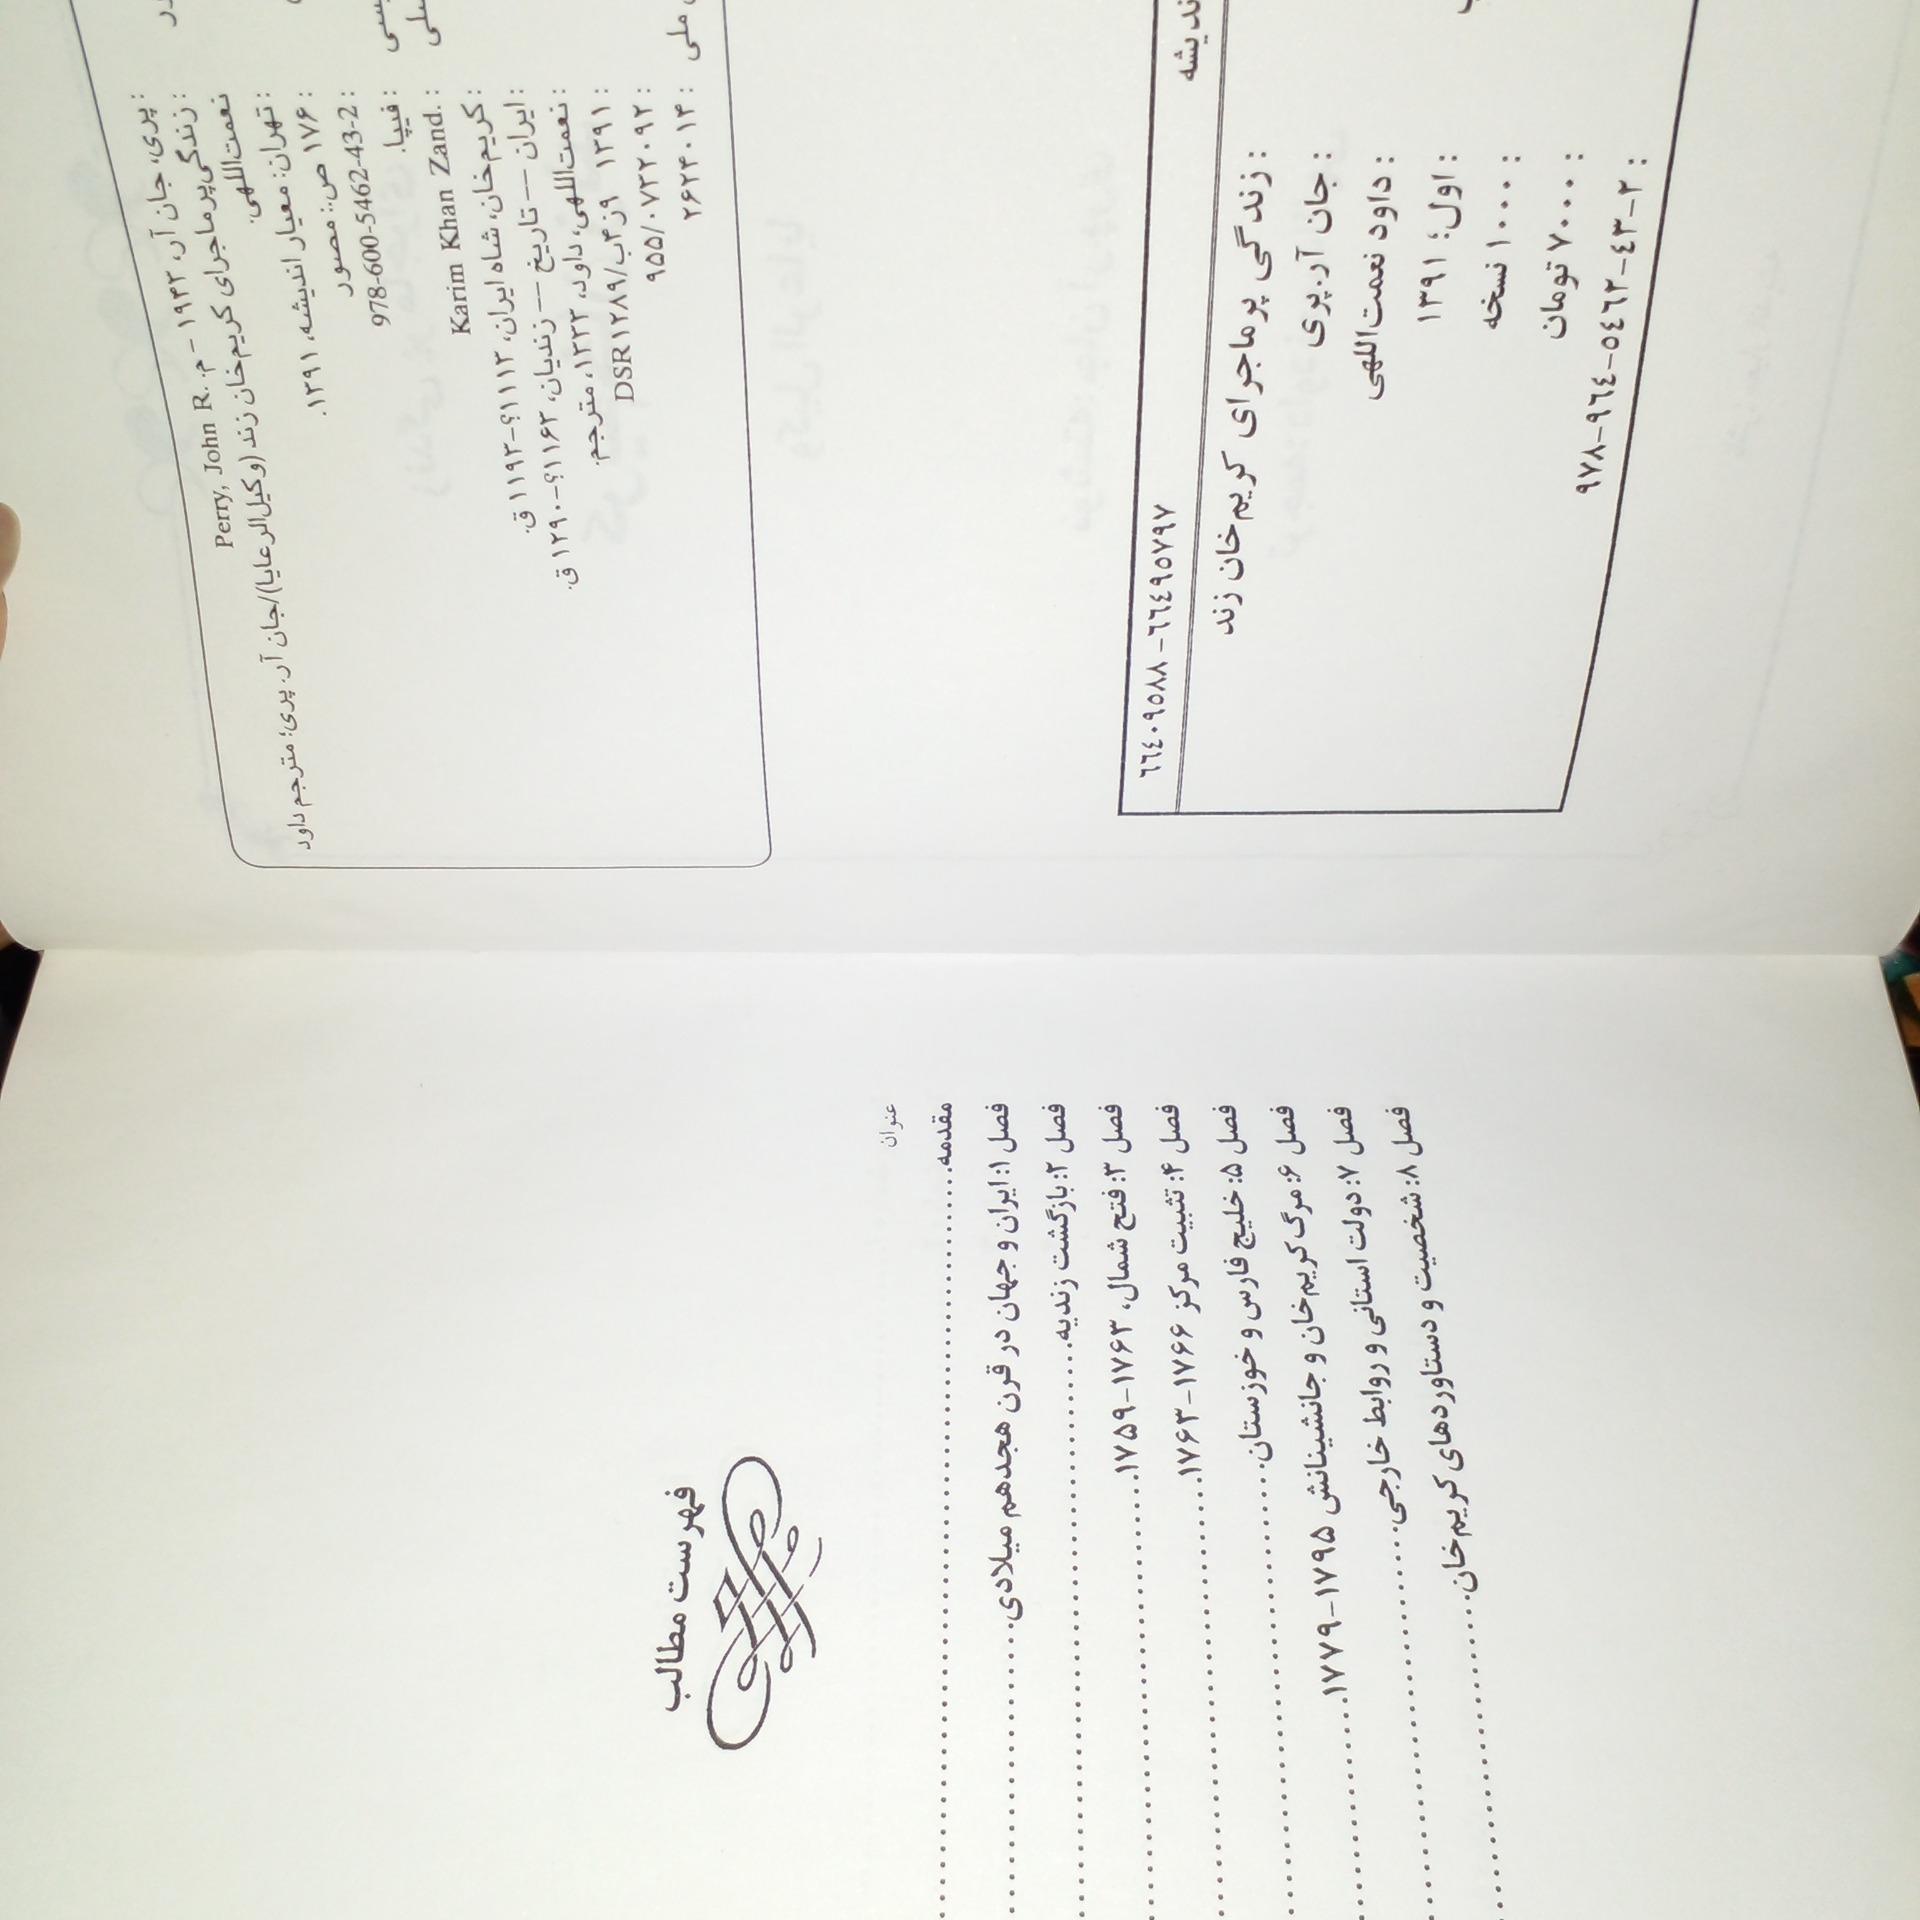 : پری، جان آر، ۱۹۴۲ - م.
Perry, John R.
: زندگی پرماجرای کریم‌خان زند (وکیل‌الرعایا)/جان آر. پری؛ مترجم داود
نعمت‌اللهی.
: تهران: معیار اندیشه، ۱۳۹۱.
: ۱۷۶ ص.: مصور
: 978-600-5462-43-2
: فیپا.
: Karim Khan Zand.
: کریم‌خان، شاه ایران، ۱۱۱۳؟-۱۱۹۳ ق.
: ایران -- تاریخ -- زندیان، ۱۱۶۲؟-۱۲۹۰ ق.
: نعمت‌اللهی، داود، ۱۳۳۳، مترجم.
: ۱۳۹۱ ۹ز۴ب/DSR۱۲۸۹
: ۹۵۵/۰۷۳۲۰۹۲
ملی : ۲۶۲۴۰۱۴
ندیشه
۶۶۴۰۹۵۸۸ - ۶۶۴۹۵۷۹۷
: زندگی پر ماجرای کریم‌خان زند
: جان آر. پری
: داود نعمت‌اللهی
: اول؛ ۱۳۹۱
: ۱۰۰۰۰ نسخه
: ۷۰۰۰ تومان
: ۹۷۸-۹۶۴-۵۴۶۲-۴۳-۲
فهرست مطالب
عنوان
مقدمه
فصل ۱: ایران و جهان در قرن هجدهم میلادی
فصل ۲: بازگشت زندیه
فصل ۳: فتح شمال، ۱۷۶۳-۱۷۵۹
فصل ۴: تثبیت مرکز ۱۷۶۶-۱۷۶۳
فصل ۵: خلیج فارس و خوزستان
فصل ۶: مرگ کریم‌خان و جانشینانش ۱۷۹۵-۱۷۷۹
فصل ۷: دولت استانی و روابط خارجی
فصل ۸: شخصیت و دستاوردهای کریم‌خان